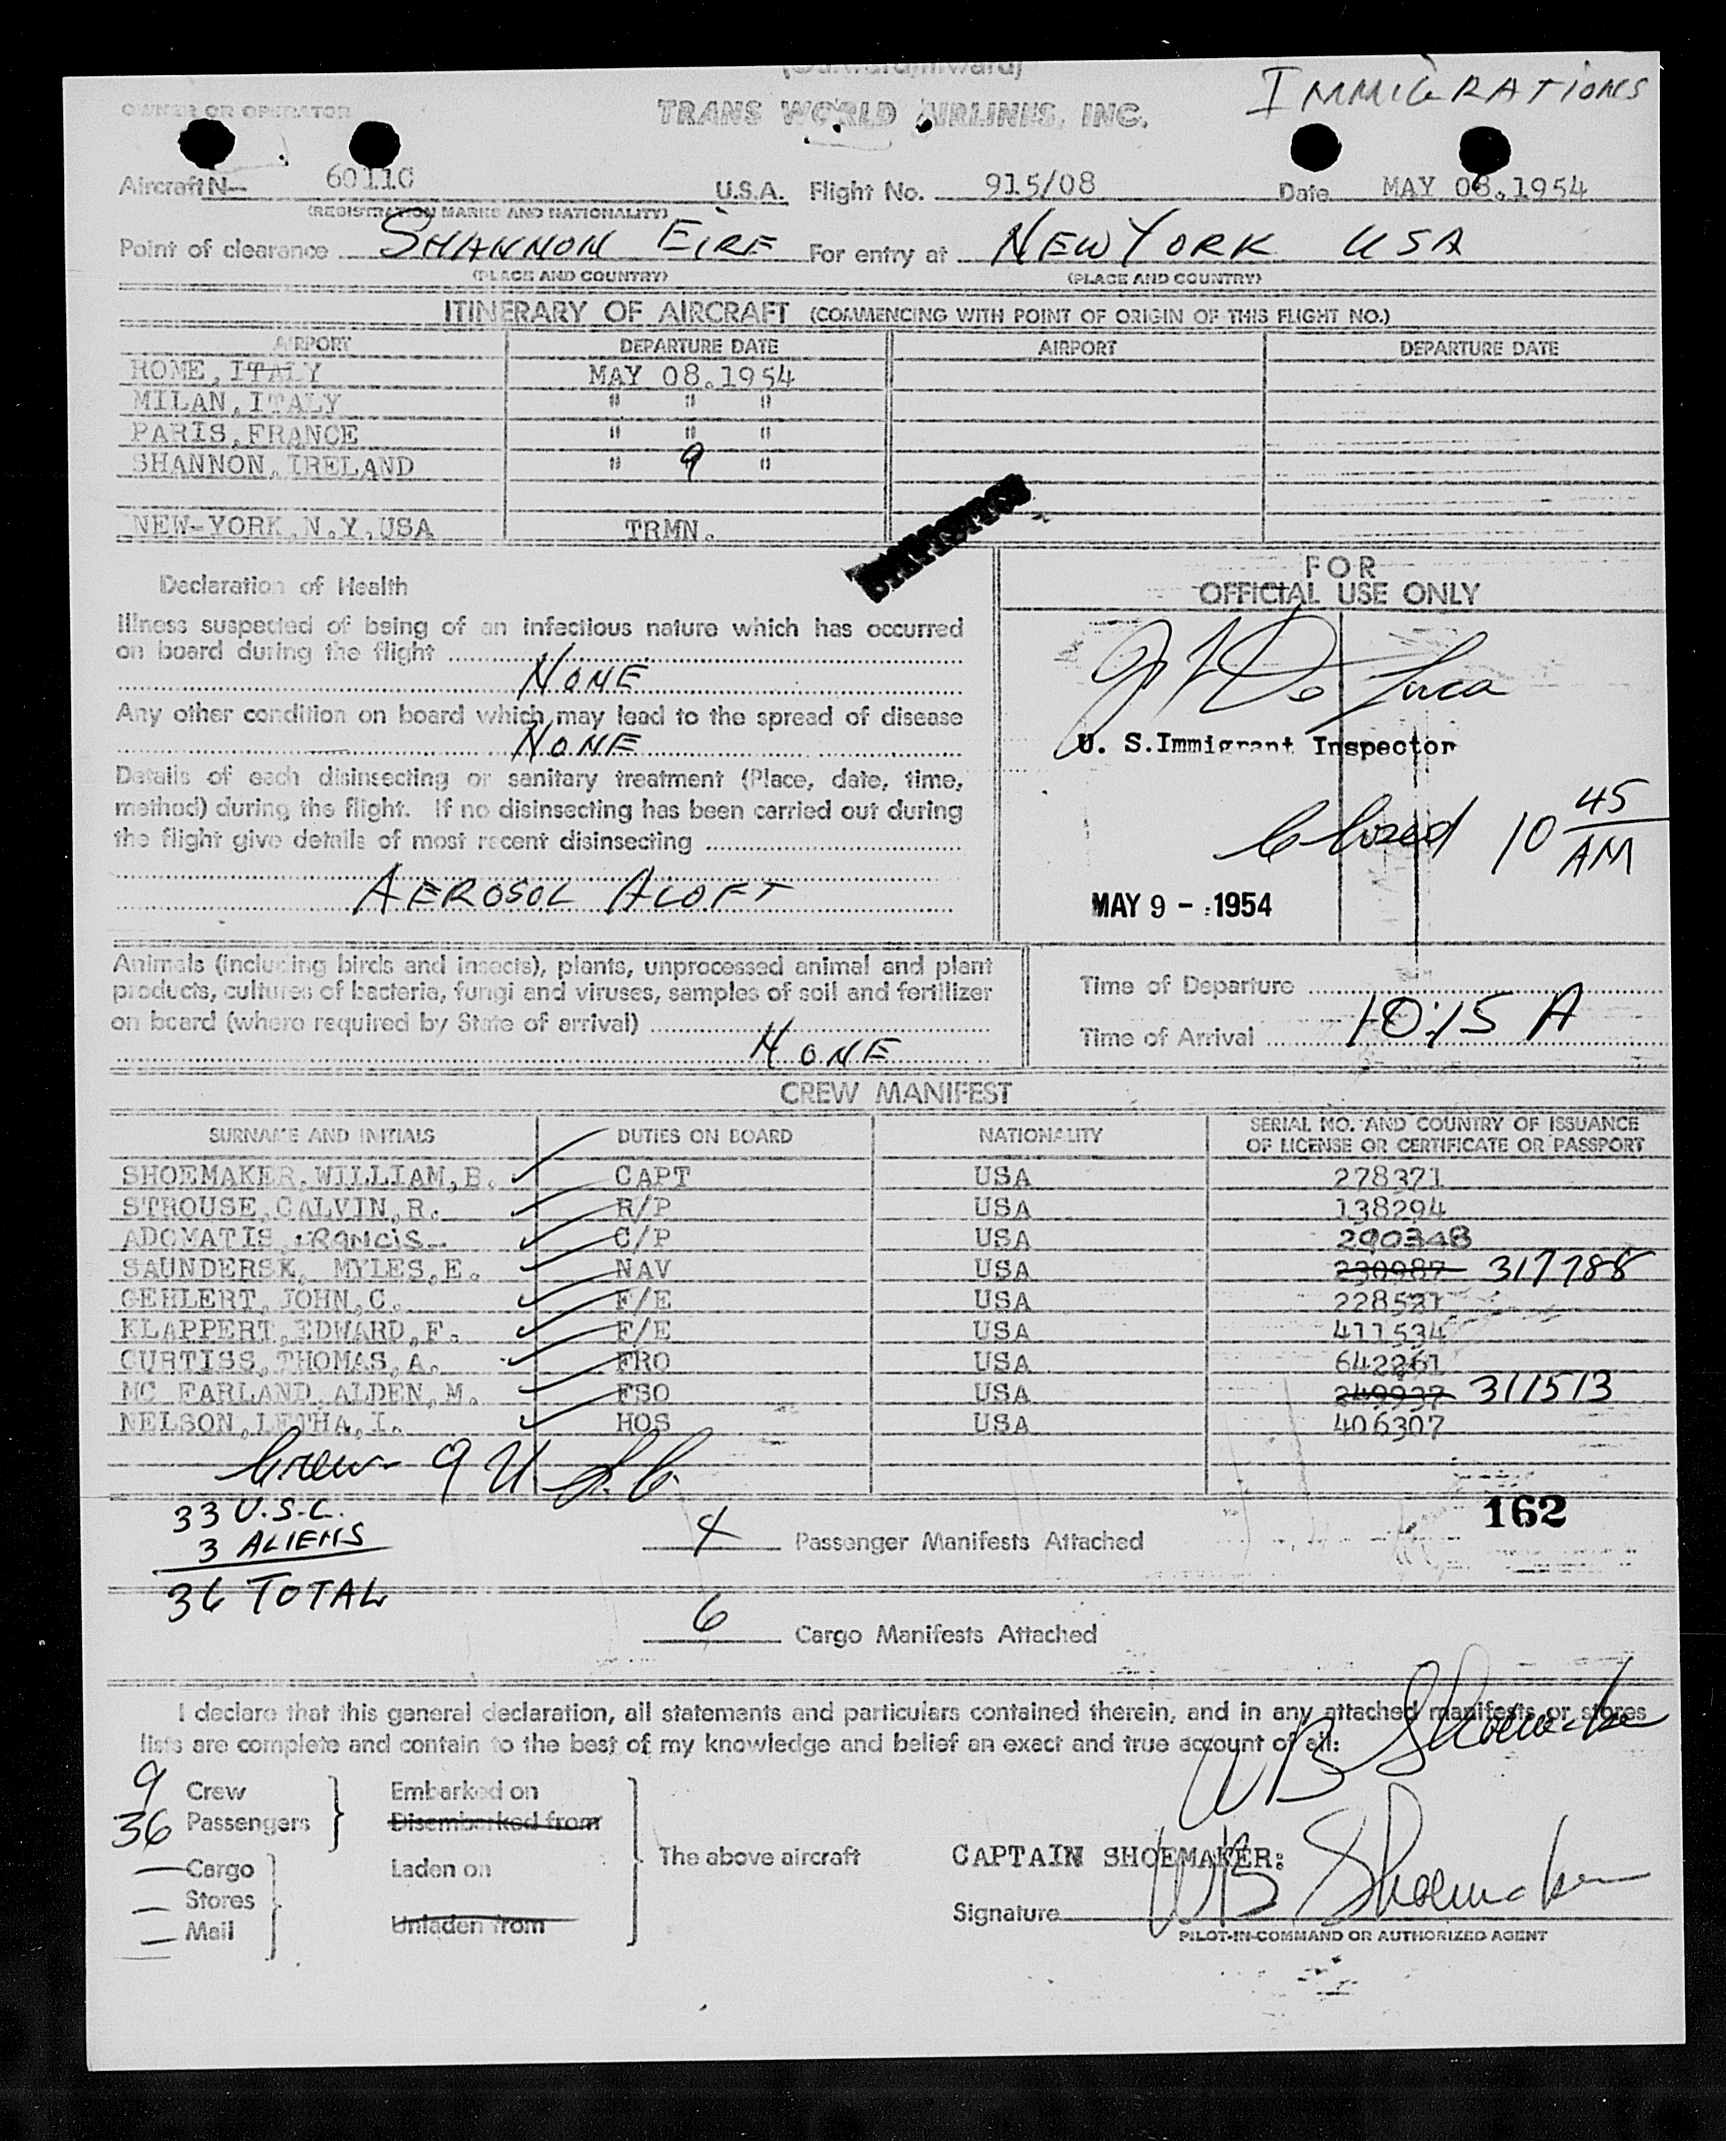 IMMIGRATIONS
OWNER OR OPERATOR
TRANS WORLD AIRLINES, INC.
Aircraft N- 6011C U.S.A. Flight No. 915/08 Date MAY 08.1954
(REGISTRATION MARKS AND NATIONALITY)
Point of clearance SHANNON EIRE For entry at NEW YORK USA
(PLACE AND COUNTRY) (PLACE AND COUNTRY)
ITINERARY OF AIRCRAFT (COMMENCING WITH POINT OF ORIGIN OF THIS FLIGHT NO.)
AIRPORT DEPARTURE DATE AIRPORT DEPARTURE DATE
ROME, ITALY MAY 08.1954
MILAN, ITALY " " "
PARIS, FRANCE " " "
SHANNON, IRELAND " 9 "
NEW-YORK, N.Y, USA TRMN.
Declaration of Health
Illness suspected of being of an infectious nature which has occurred
on board during the flight
NONE
Any other condition on board which may lead to the spread of disease
NONE
Details of each disinsecting or sanitary treatment (Place, date, time,
method) during the flight. If no disinsecting has been carried out during
the flight give details of most recent disinsecting
AEROSOL ALOFT
FOR
OFFICIAL USE ONLY
De Luca
U. S. Immigrant Inspector
Closed 10 45 AM
MAY 9 - 1954
Animals (including birds and insects), plants, unprocessed animal and plant
products, cultures of bacteria, fungi and viruses, samples of soil and fertilizer
on board (where required by State of arrival)
NONE
Time of Departure
Time of Arrival 10:15 A
CREW MANIFEST
SURNAME AND INITIALS DUTIES ON BOARD NATIONALITY SERIAL NO. AND COUNTRY OF ISSUANCE
OF LICENSE OR CERTIFICATE OR PASSPORT
SHOEMAKER, WILLIAM, B. CAPT USA 278371
STROUSE, CALVIN, R. R/P USA 138294
ADOMATIS, FRANCIS C/P USA 290348
SAUNDERSK, MYLES, E. NAV USA 230987 317788
GEHLERT, JOHN, C. F/E USA 228521
KLAPPERT, EDWARD, F. F/E USA 411534
CURTISS, THOMAS, A. FRO USA 642261
MC FARLAND, ALDEN, M. FSO USA 249937 311513
NELSON, LETHA, I. HOS USA 406307
Crew - 9 U.S.C.
33 U.S.C.
3 ALIENS
36 TOTAL
162
4 Passenger Manifests Attached
6 Cargo Manifests Attached
I declare that this general declaration, all statements and particulars contained therein, and in any attached manifests or stores
lists are complete and contain to the best of my knowledge and belief an exact and true account of all:
WB Shoemaker
9 Crew
36 Passengers
Cargo
Stores
Mail
Embarked on
Disembarked from
Laden on
Unladen from
The above aircraft
CAPTAIN SHOEMAKER:
Signature WB Shoemaker
PILOT-IN-COMMAND OR AUTHORIZED AGENT